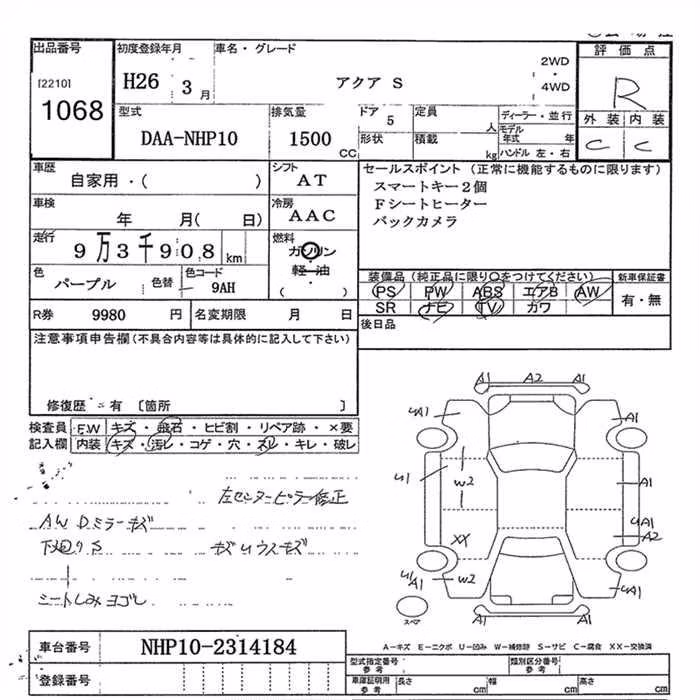 出品番号
[2210]
1068
初度登録年月
H26 3月
車名・グレード
アクア S
2WD
・
4WD
評価点
R
外装 内装
C C
型式
DAA-NHP10
排気量
1500 CC
ドア 5
形状
定員 人
積載 kg
ディーラー・並行
モデル年式 年
ハンドル 左・右
車歴
自家用・( )
シフト
AT
車検
年 月( 日)
冷房
AAC
走行
9万3千908 km
燃料
ガソリン
軽・油
・
( )
色
パープル
色替
色コード
9AH
セールスポイント(正常に機能するものに限ります)
スマートキー2個
Fシートヒーター
バックカメラ
装備品(純正品に限り○をつけてください)
新車保証書
PS PW ABS エアB AW
有・無
SR ナビ TV カワ
後日品
R券 9980 円
名変期限 月 日
注意事項申告欄(不具合内容等は具体的に記入して下さい)
修復歴・有 〔箇所 〕
検査員記入欄
F.W キズ・飛石・ヒビ割・リペア跡・×要
内装 キズ・汚レ・コゲ・穴・スレ・キレ・破レ
左センターピラー修正
AW Dミラーキズ
キズUウスキズ
シートしみヨゴレ
A1 A2 A1
UA1
A1
U1
W2
A1
UA1
A2
XX
U1/A1
W2
A1
A1 A1
スペア
車台番号
NHP10-2314184
登録番号
A-キズ E-エクボ U-凹み W-補修跡 S-サビ C-腐食 XX-交換済
型式指定番号 参考
類別区分番号 参考
車庫証明用 参考
長さ cm
幅 cm
高さ cm